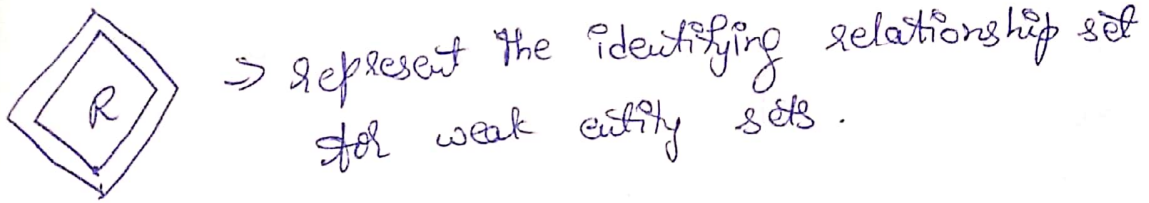 R
⇒ represent the identifying relationship set
for weak entity sets.